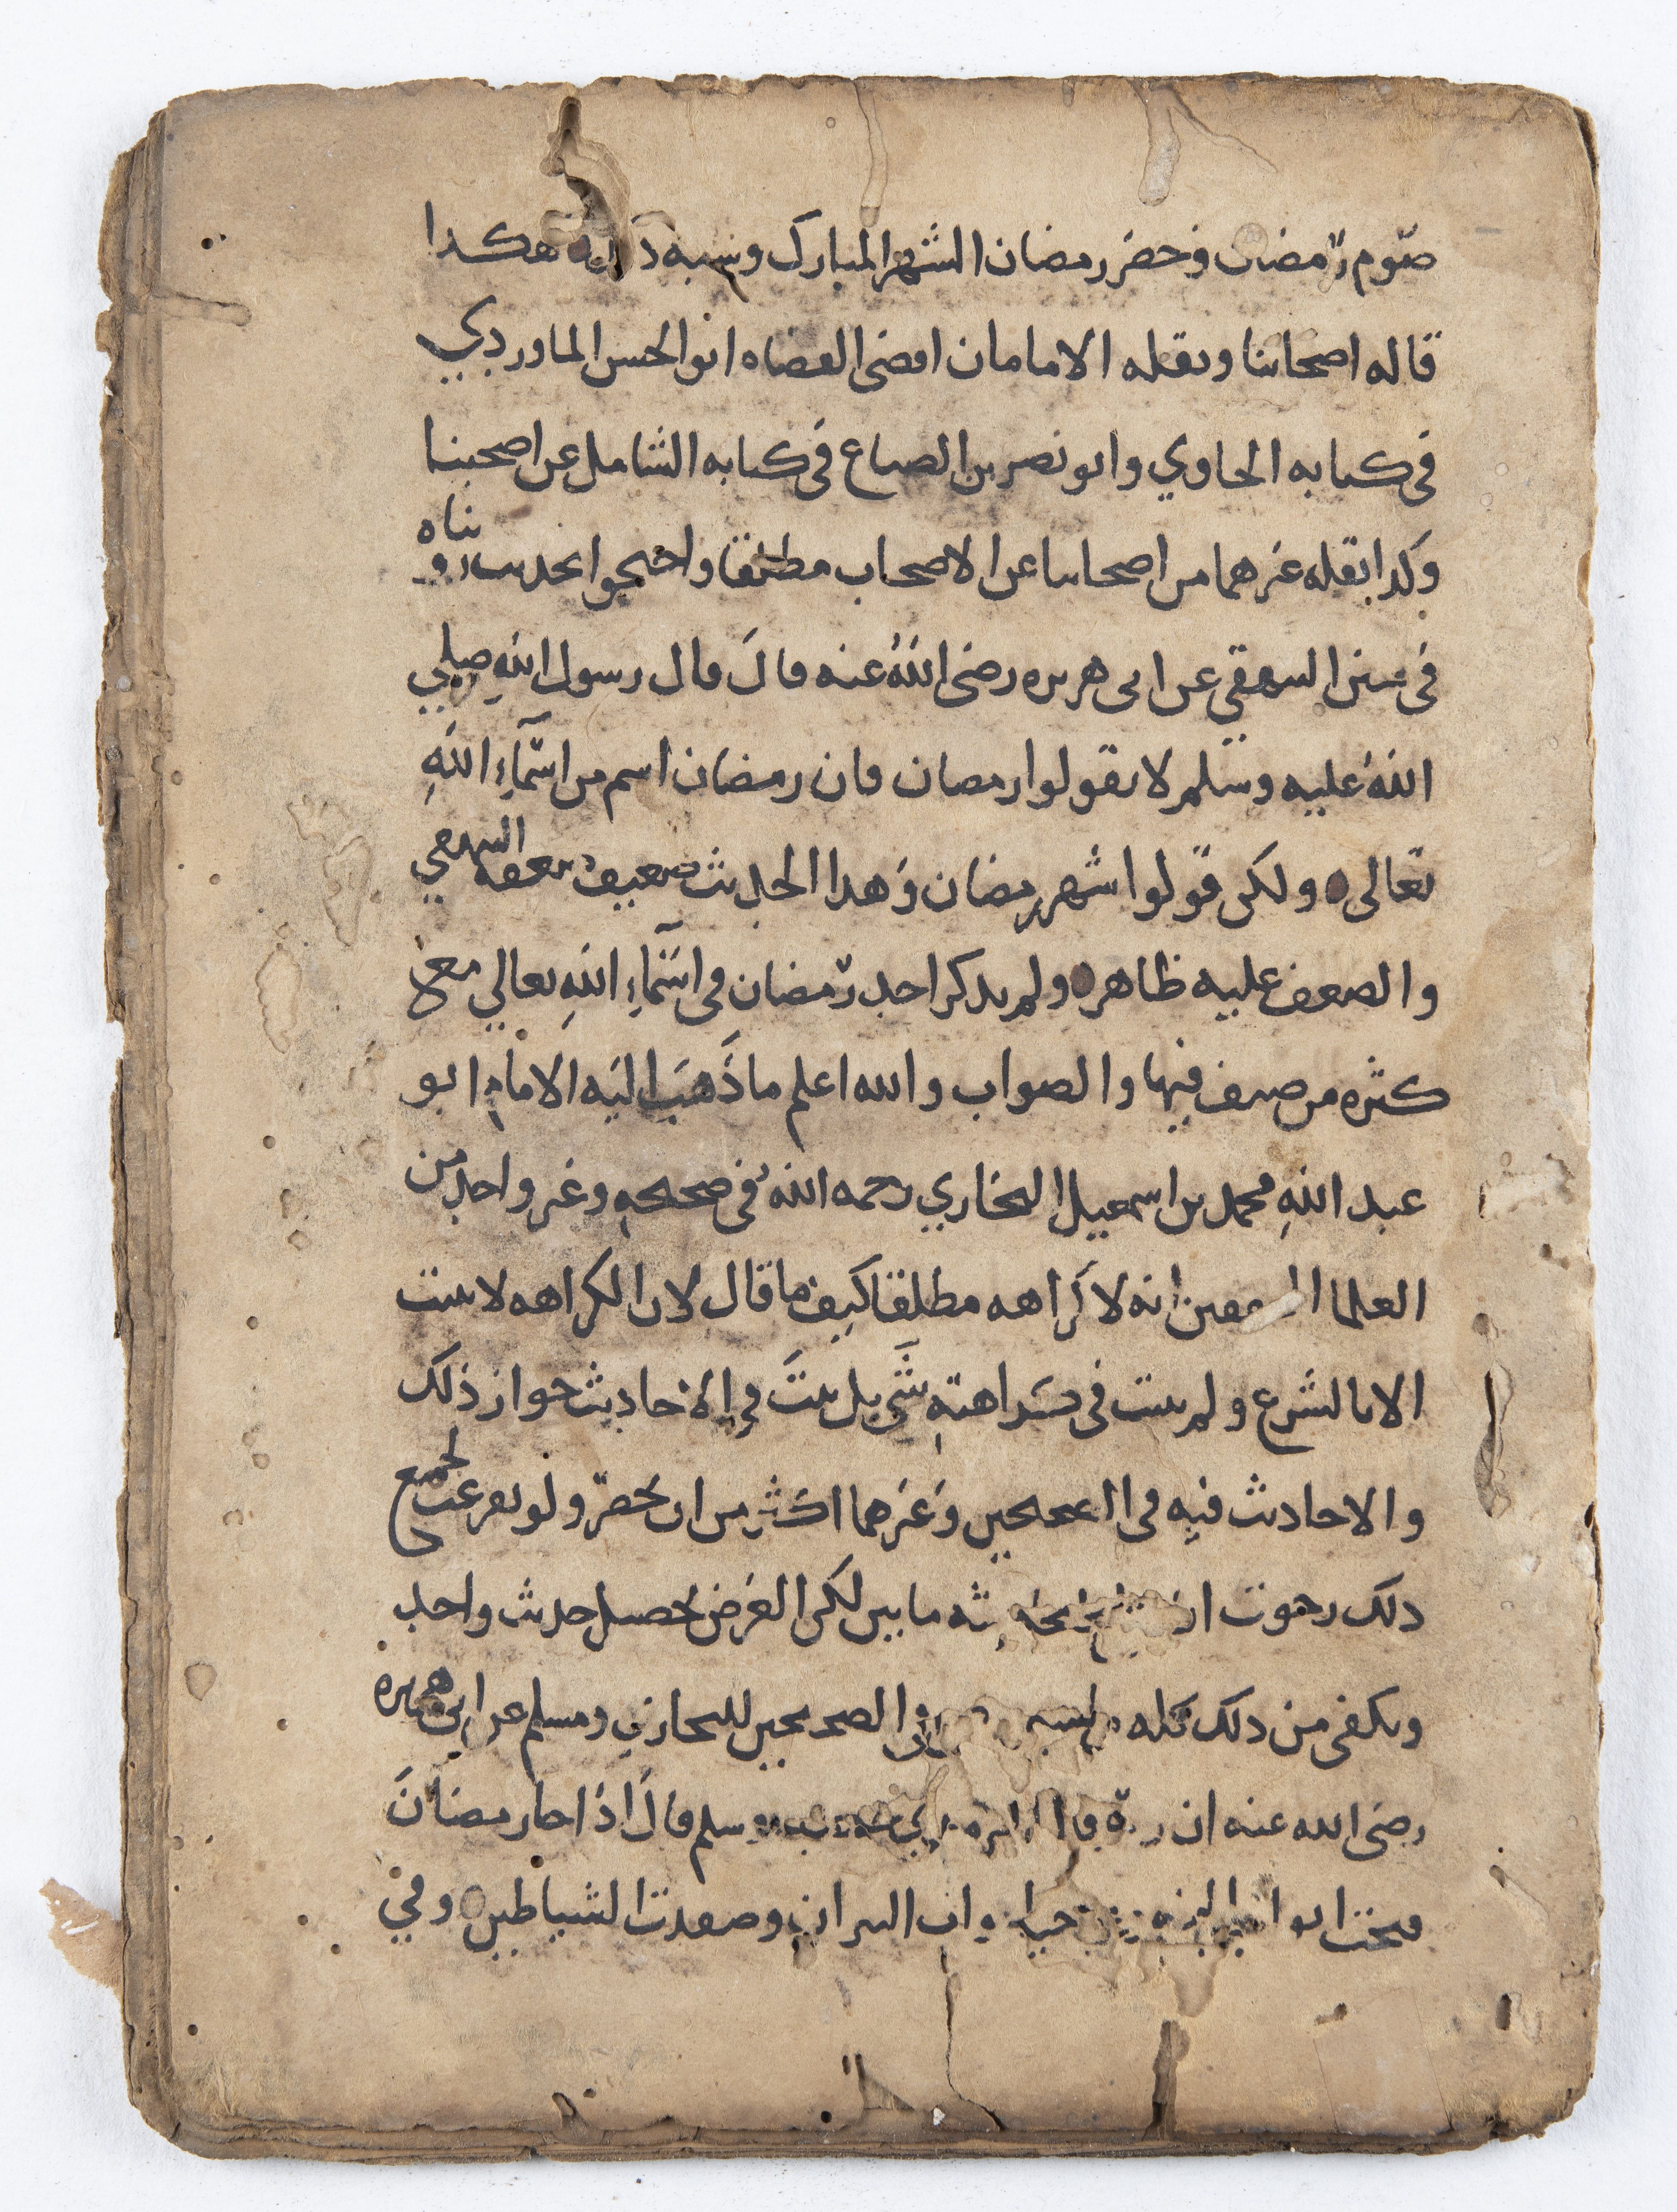 صوم رمضان وحضر رمضان الشهر المبارك وشبه ذلك هكذا
قاله اصحابنا ونقله الامامان اقضى القضاه ابو الحسن الماوردي
في كتابه الحاوي وابو نصر بن الصباغ في كتابه الشامل عن اصحبنا
وكذا نقله غيرهما من اصحابنا عن الاصحاب مطلقا واحتجوا بحديث رويناه
في سنن البيهقي عن ابي هريره رضي اللهُ عنه قالَ قال رسول اللهِ صلي
اللهُ عليه وسلم لا تقولوا رمضان فان رمضان اسم من اسمآءِ اللهِ
تعالى ولكن قولوا شهر رمضان وَهذا الحديث ضعيف ضعفه البيهقي
والضعف عليه ظاهر ولم يذكر احد رمضان في اسمآءِ اللهِ تعالي مع
كثره من صنف فيها والصواب والله اعلم ما ذَهَبَ اليه الامام ابو
عبد اللهِ محمد بن اسمعيل البخاري رحمه الله في صحيحهِ وغير واحد من
العلما المحققين انه لا كَراهه مطلقا كيف ما قال لان الكراهه لا تثبت
الا بالشرع ولم يثبت في كراهتهِ شَي بل ثبتَ في الاحاديث جواز ذلك
والاحاديث فيه في الصحيحين وَغيرهما اكثر من ان تحصر ولو تفرغت لجميع
ذلك رجوت ان ما بين لكن الغرض تحصيل حديث واحد
ويكفي من ذلك كله الصحيحين للبخاري ومسلم عن ابي هريره
رضي الله عنه ان وسلم قالَ اذا جا رمضانَ
فتحت ابواب النيران وصفدت الشياطين وفي